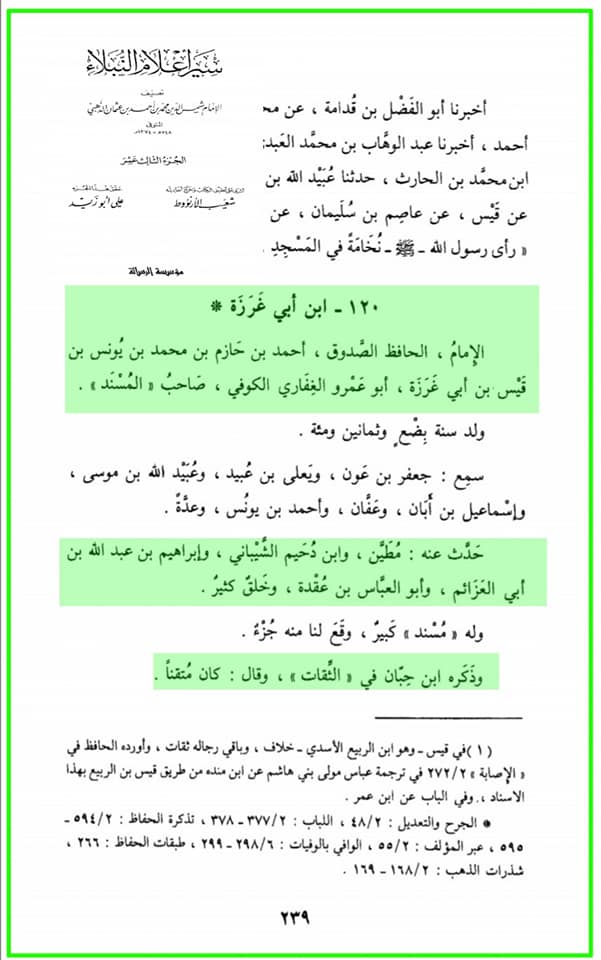 سير أعلام النبلاء
تصنيف
الإمام شمس الدين محمد بن أحمد بن عثمان الذهبي
المتوفى
الجزء الثالث عشر
شعيب الأرنؤوط
علي أبو زيد
مؤسسة الرسالة
أخبرنا أبو الفَضْل بن قُدامة ، عن
أحمد ، أخبرنا عبد الوهَّاب بن محمَّد
ابن محمَّد بن الحارث ، حدثنا عُبَيْد الله بن
عن قَيْس ، عن عاصم بن سُلَيمان ، عن
« رأى رسول الله ـ ﷺ ـ نُخَامَةً في المَسْجِدِ
١٢٠ ـ ابن أبي غَرَزَة *
الإِمامُ ، الحافظ الصَّدوق ، أحمد بن حَازِم بن محمد بن يُونس بن
قَيْس بن أبي غَرَزَة ، أبو عَمْرو الغِفَاري الكوفي ، صَاحبُ « المُسْنَد » .
ولد سنة بِضْعٍ وثمانين ومئة .
سمِع : جعفر بن عَون ، ويَعلى بن عُبيد ، وعُبَيْد الله بن موسى ،
وإسْماعيل بن أَبَان ، وعَفَّان ، وأحمد بن يونُس ، وعدَّةً .
حَدَّث عنه : مُطَيَّن ، وابن دُحَيم الشَّيْباني ، وإبراهيم بن عبد الله بن
أبي العَزَائم ، وأبو العبَّاس بن عُقْدة ، وخَلقٌ كثيرٌ .
وله « مُسْند » كَبيرٌ ، وقَعَ لنا منه جُزْءٌ .
وذَكَره ابن حِبَّان في « الثِّقات » ، وقال : كان مُتقناً .
( ١ ) في قيس ـ وهو ابن الربيع الأسدي ـ خلاف ، وباقي رجاله ثقات ، وأورده الحافظ في
« الإصابة » ٢٧٢/٢ في ترجمة عباس مولى بني هاشم عن ابن منده من طريق قيس بن الربيع بهذا
الاسناد ، وفي الباب عن ابن عمر .
* الجرح والتعديل : ٤٨/٢ ، اللباب : ٣٧٧/٢ ـ ٣٧٨ ، تذكرة الحفاظ : ٥٩٤/٢ ـ
٥٩٥ ، عبر المؤلف : ٥٥/٢ ، الوافي بالوفيات : ٢٩٨/٦ ـ ٢٩٩ ، طبقات الحفاظ : ٢٦٦ ،
شذرات الذهب : ١٦٨/٢ ـ ١٦٩ .
٢٣٩